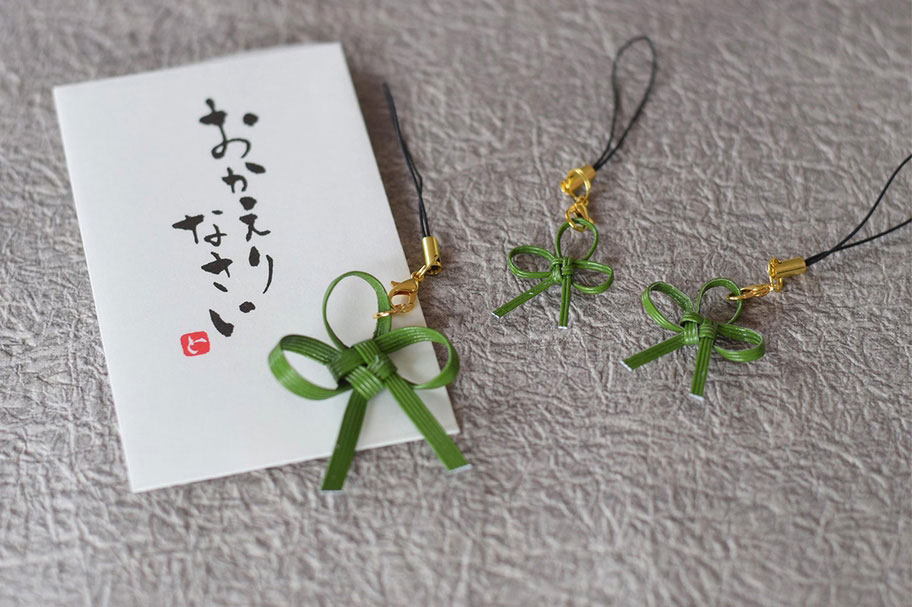 おかえり
なさい
と